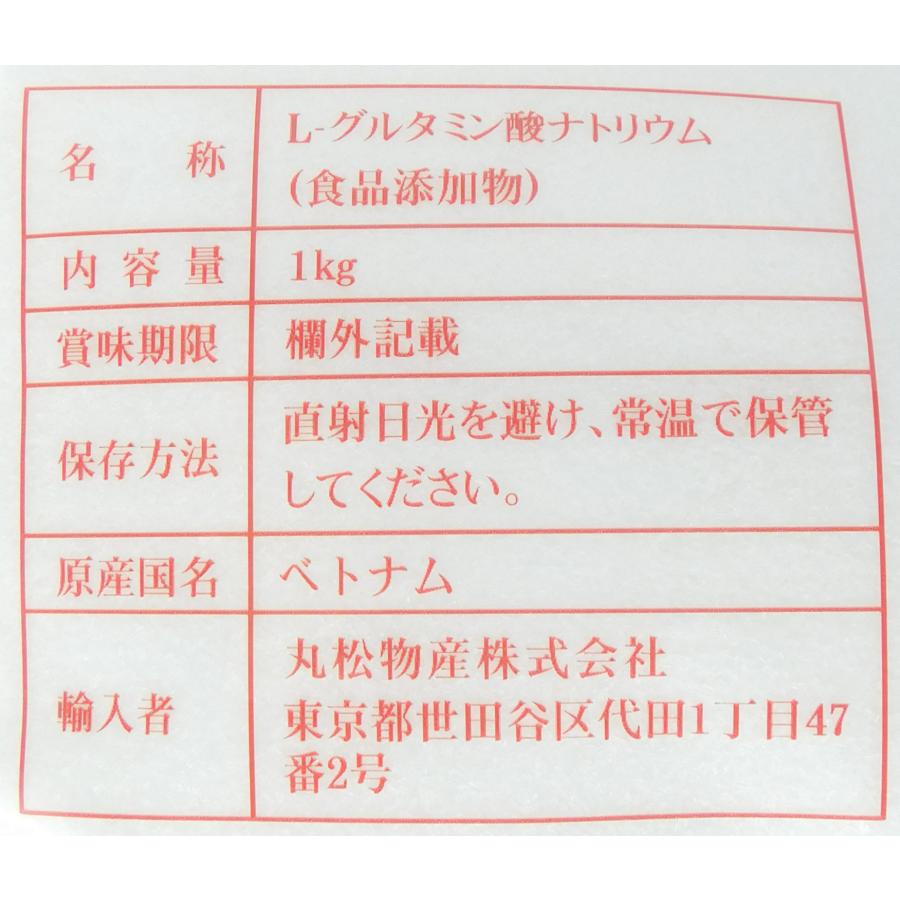 名称
L-グルタミン酸ナトリウム
(食品添加物)
内容量
1kg
賞味期限
欄外記載
保存方法
直射日光を避け、常温で保管
してください。
原産国名
ベトナム
輸入者
丸松物産株式会社
東京都世田谷区代田1丁目47
番2号